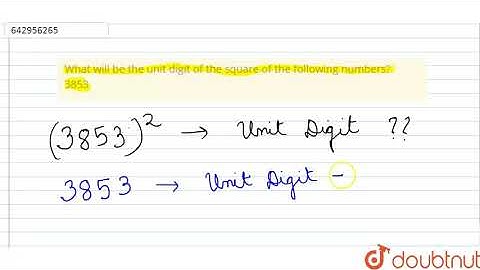 642956265
What will be the unit digit of the square of the following numbers?
3853
(3853)² → Unit Digit ??
3853 → Unit Digit -
doubtnut